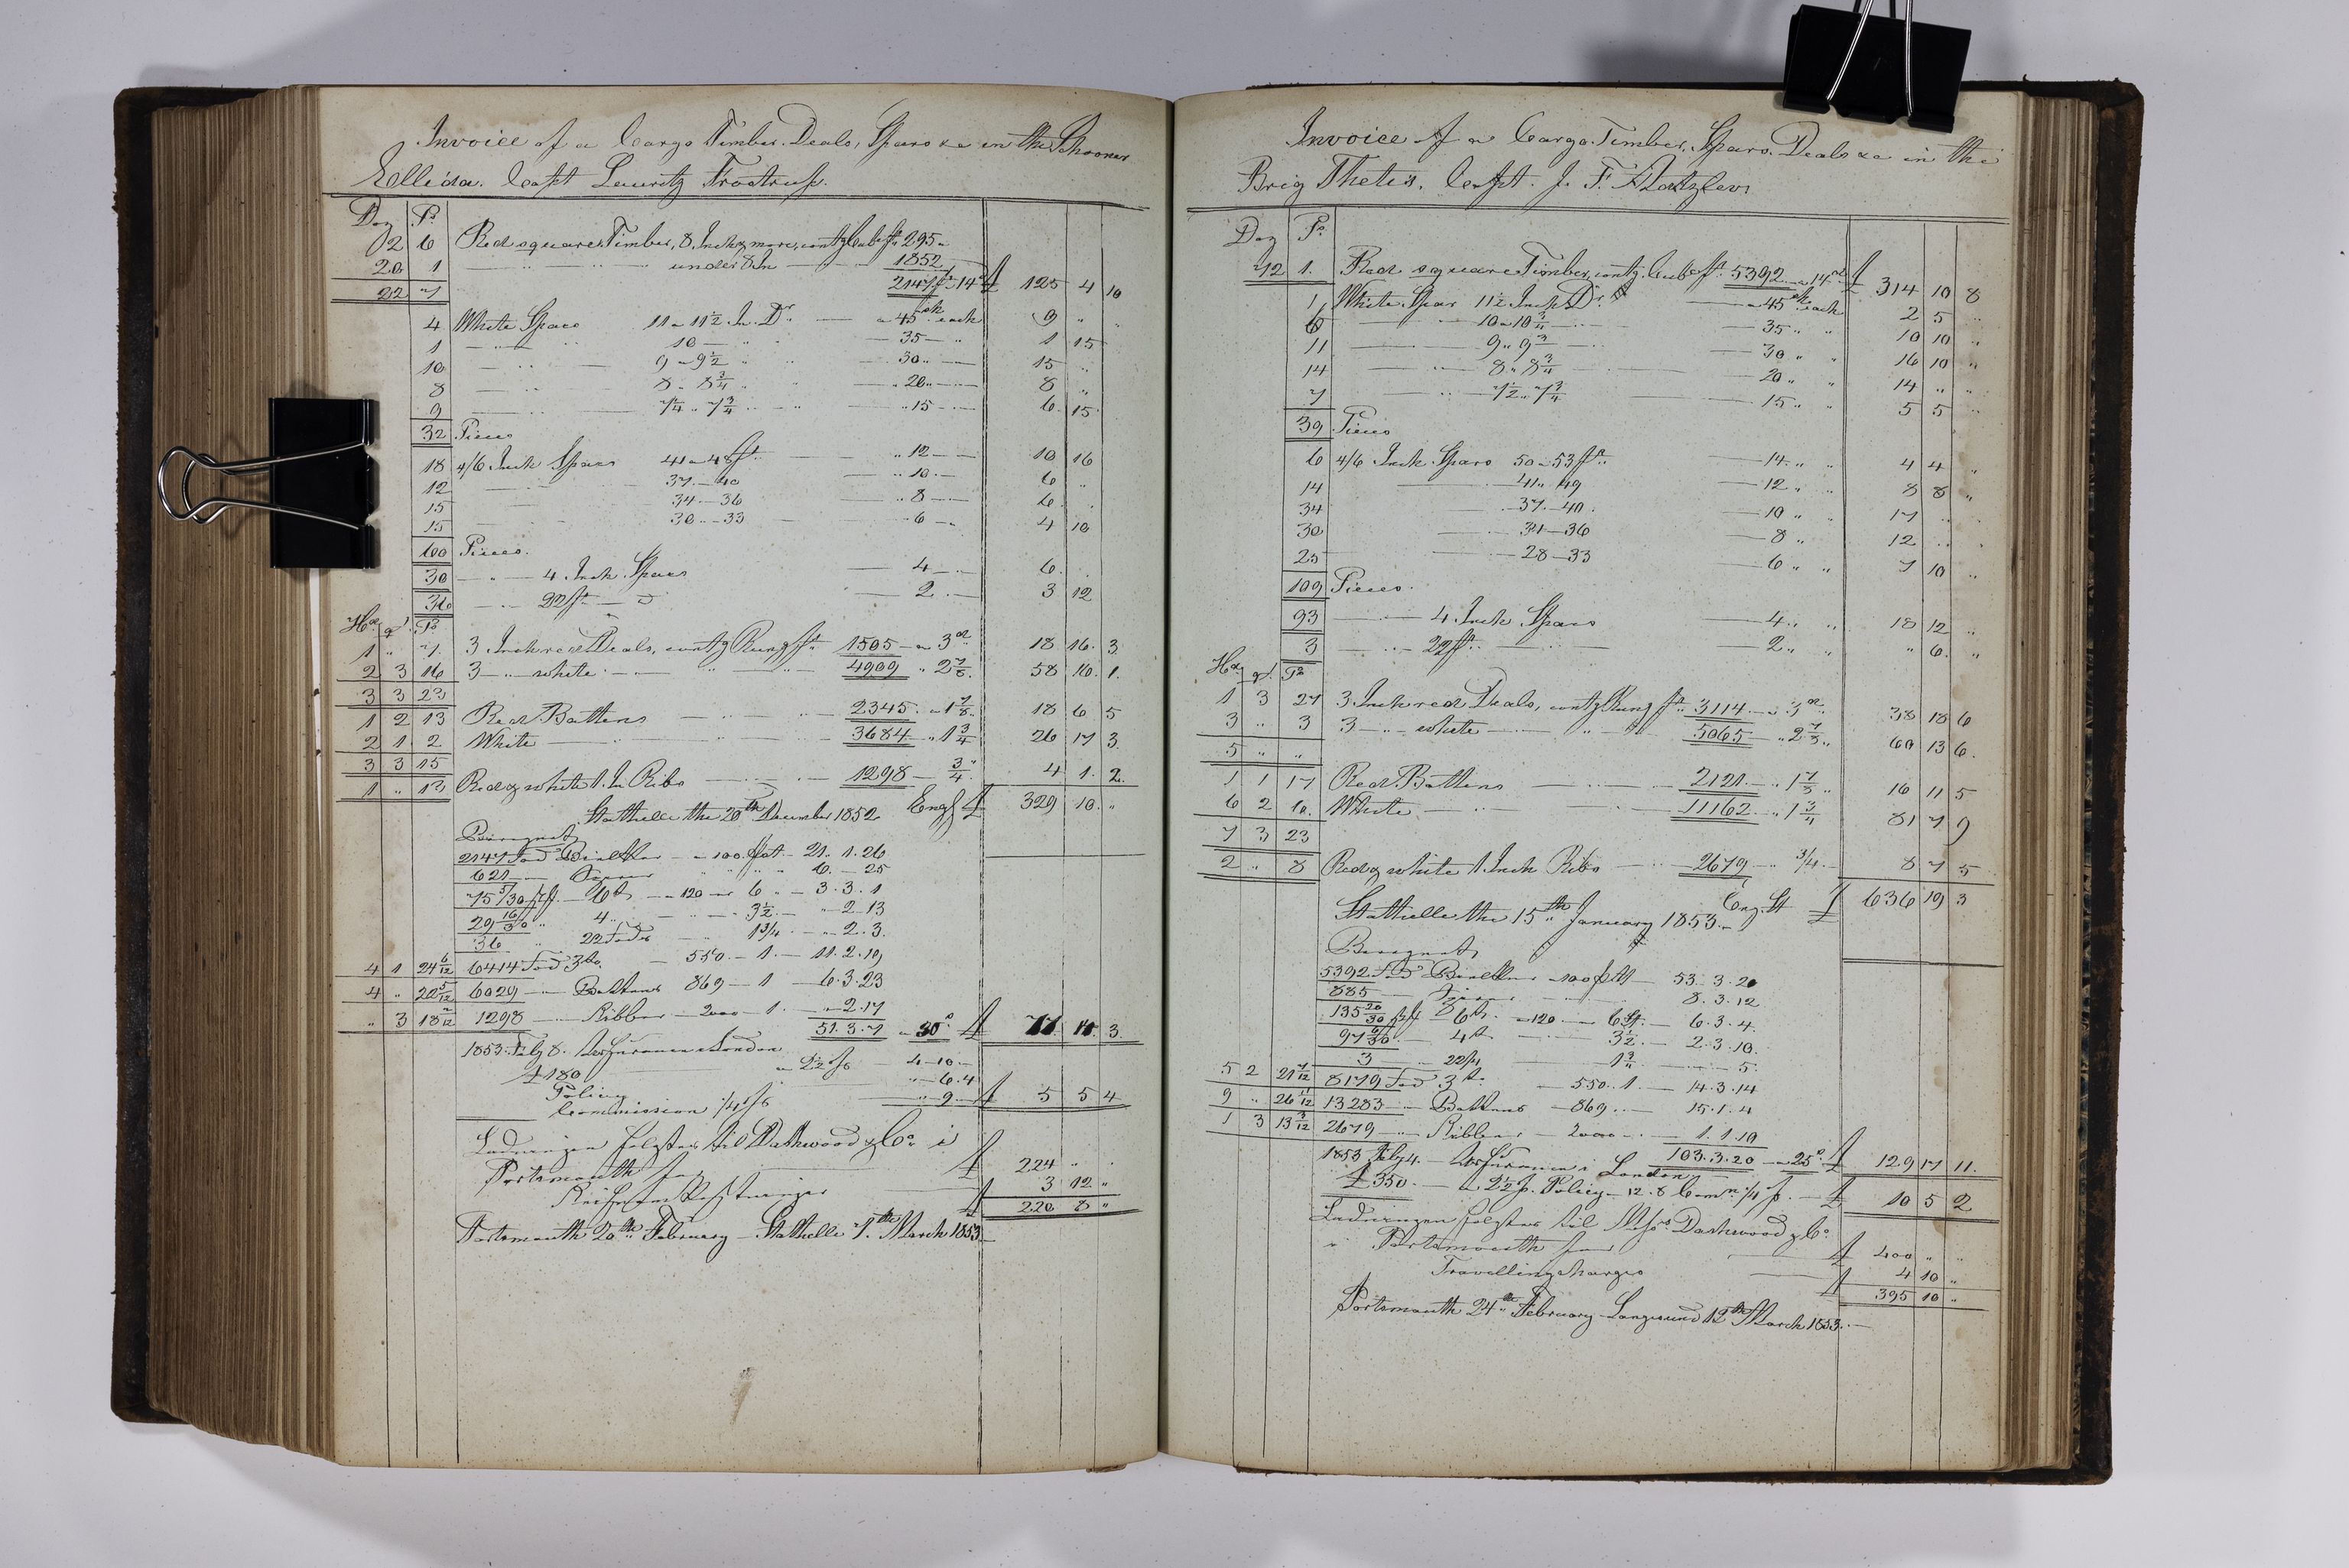 Invoice of a Cargo Timber. Deals, Spars &c in the Schooner
Ellida. Capt Lauritz Trostrup.
Doz P.
02 6 Red square Timber, 8 Inch & more, contg Cubeft 295
20 1 under 8 In 1852
22 7 2147 ft a 14d £ 125 4 10
4 White Spars 11 a 11½ In. Dr. — a 45sh each 9 " "
1 10 — 35 — 1 15
10 9 a 9½ — 30 " — 15 "
8 8 " 8¾ — " 20 " — 8 "
9 7¼ " 7¾ — " 15 — 6. 15.
32 Pieces
18 4/6 Inch Spars 41 a 48ft — " 12 — 10 16
12 37 — 40 — " 10 — 6 "
15 34 — 36 — " 8 — 6 .
15 30 — 33 — " 6 — 4 10
60 Pieces.
30 — 4 Inch Spars — 4 — 6.
36 — 22ft — d — 2 — 3 12
Hd q. Ps
1 " 7. 3 Inch red Deals, contg Rung ft 1505 — a 3d 18 16. 3.
2 3 16 3 — " white — 4909 " 2⅞. 58 16. 1.
3 3 23
1 2 13 Red Battens — 2345. — a 1⅞. 18 6 5
2 1. 2 White — 3684 " 1¾ 26 17 3.
3 3 15
1 " 13 Red & white 1. In Ribs — 1298 — ¾. 4 1. 2.
Stathelle the 20th December 1852. Engl £ 329 10. "
2147 Fod Bielker — a 100. 21. 1. 26
621 — " " 6. — 25
75 5/30 6t — a 120 — 6 " — 3. 3. 1
29 16/30 " 4 " — 3½ — " 2 13
36 " 22 Fods — 1¾ — " 2. 3.
4 1 24 6/12 6414 Fod 3to — 550. — 1. — 11. 2. 19
4 " 22 5/12 6029 — Battens 869 — 1 — 6. 3. 23
" 3 18 2/12 1298 — Ribber — 2000 — 1. — " 2. 17
51. 3. 7 a 30s £ 77 14. 3.
1853. Feby 8. Assurance London
£ 180 — a 2½ % 4 — 10 —
Policy " — 6. 4
Commission ¼ % " 9 — £ 5 5 4
Ladningen solgtes til Dashwood & Co i
Portsmouth for — £ 224 " "
3 12 "
£ 220 8 "
Portsmouth 20th February — Stathelle 7th March 1853 —
Invoice of a Cargo Timber, Spars. Deals &c in the
Brig Thetis. Capt. J. F.
Doz Ps
72 1. Red square Timber, contg Cubeft 5392 — a 14d £ 314 10 8
1 White Spar 11½ Inch Dr — a 45sh each 2 5 "
6 — 10 a 10¾ — 35 " " 10 10 "
11 — 9 " 9¾ — 30 " " 16 10 "
14 — 8 " 8¾ — 20 " " 14 " "
7 — 7½ " 7¾ — 15 " " 5 5 "
39 Pieces
6 4/6 Inch Spars 50 a 53 ft — 14 " " 4 4 "
14 — 41 " 49 — 12 " " 8 8 "
34 — 37 — 40. — 10 " " 17 " "
30 — 34 — 36 — 8 " 12 " "
25 — 28 — 33 — 6 " " 7 10 "
109 Pieces.
93 — 4 Inch Spars — 4 " " 18 12 "
3 — 22ft — 2 " " " 6. "
Hd q. Ps
1 3 27 3 Inch red Deals, contg Rung ft 3114 — a 3d 38 18 6
3 " 3 3 — " white — 5065 — " 2⅞ " 60 13 6.
5 " "
1 1 17 Red Battens — 2121 — " 1⅞ " 16 11 5
6 2 10. White — 11162 — " 1¾ 81 7 9
7 3 23
2 " 8 Red & white 1 Inch Ribs — 2679 — " 3/4. — 8 7 5
Eng. St £ 636 19 3
Stathelle the 15th January 1853. —
5392 Fod Bielker — a 100 — 53. 3. 20
885 — 8. 3. 12
135 20/30 6t. — 120 — 6 — 6. 3. 4.
97 4t — 3½ — 2. 3. 10.
3 " 22 ft 1¾ — 5.
5 2 21 7/12 8179 Fod 3t — 550. 1. — 14. 3. 14
9 " 26 11/12 13283 — Battens — 869. — 15. 1. 4
1 3 13 3/12 2679 — Ribber — 2000 — 1. 1. 10
103. 3. 20 — a 25s £ 129 17 11.
1853 Feby 4. — Assurance i London
£ 350. — a 2½ p. Policy — 12. 8 Comn ¼ p. — £ 10 5 2
Ladningen solgtes til Messrs Dashwood & Co
i Portsmouth for — £ 400 " "
Travelling charges — 4 10 "
£ 395 10 "
Portsmouth 24th February — Langesund 12th March 1853. —